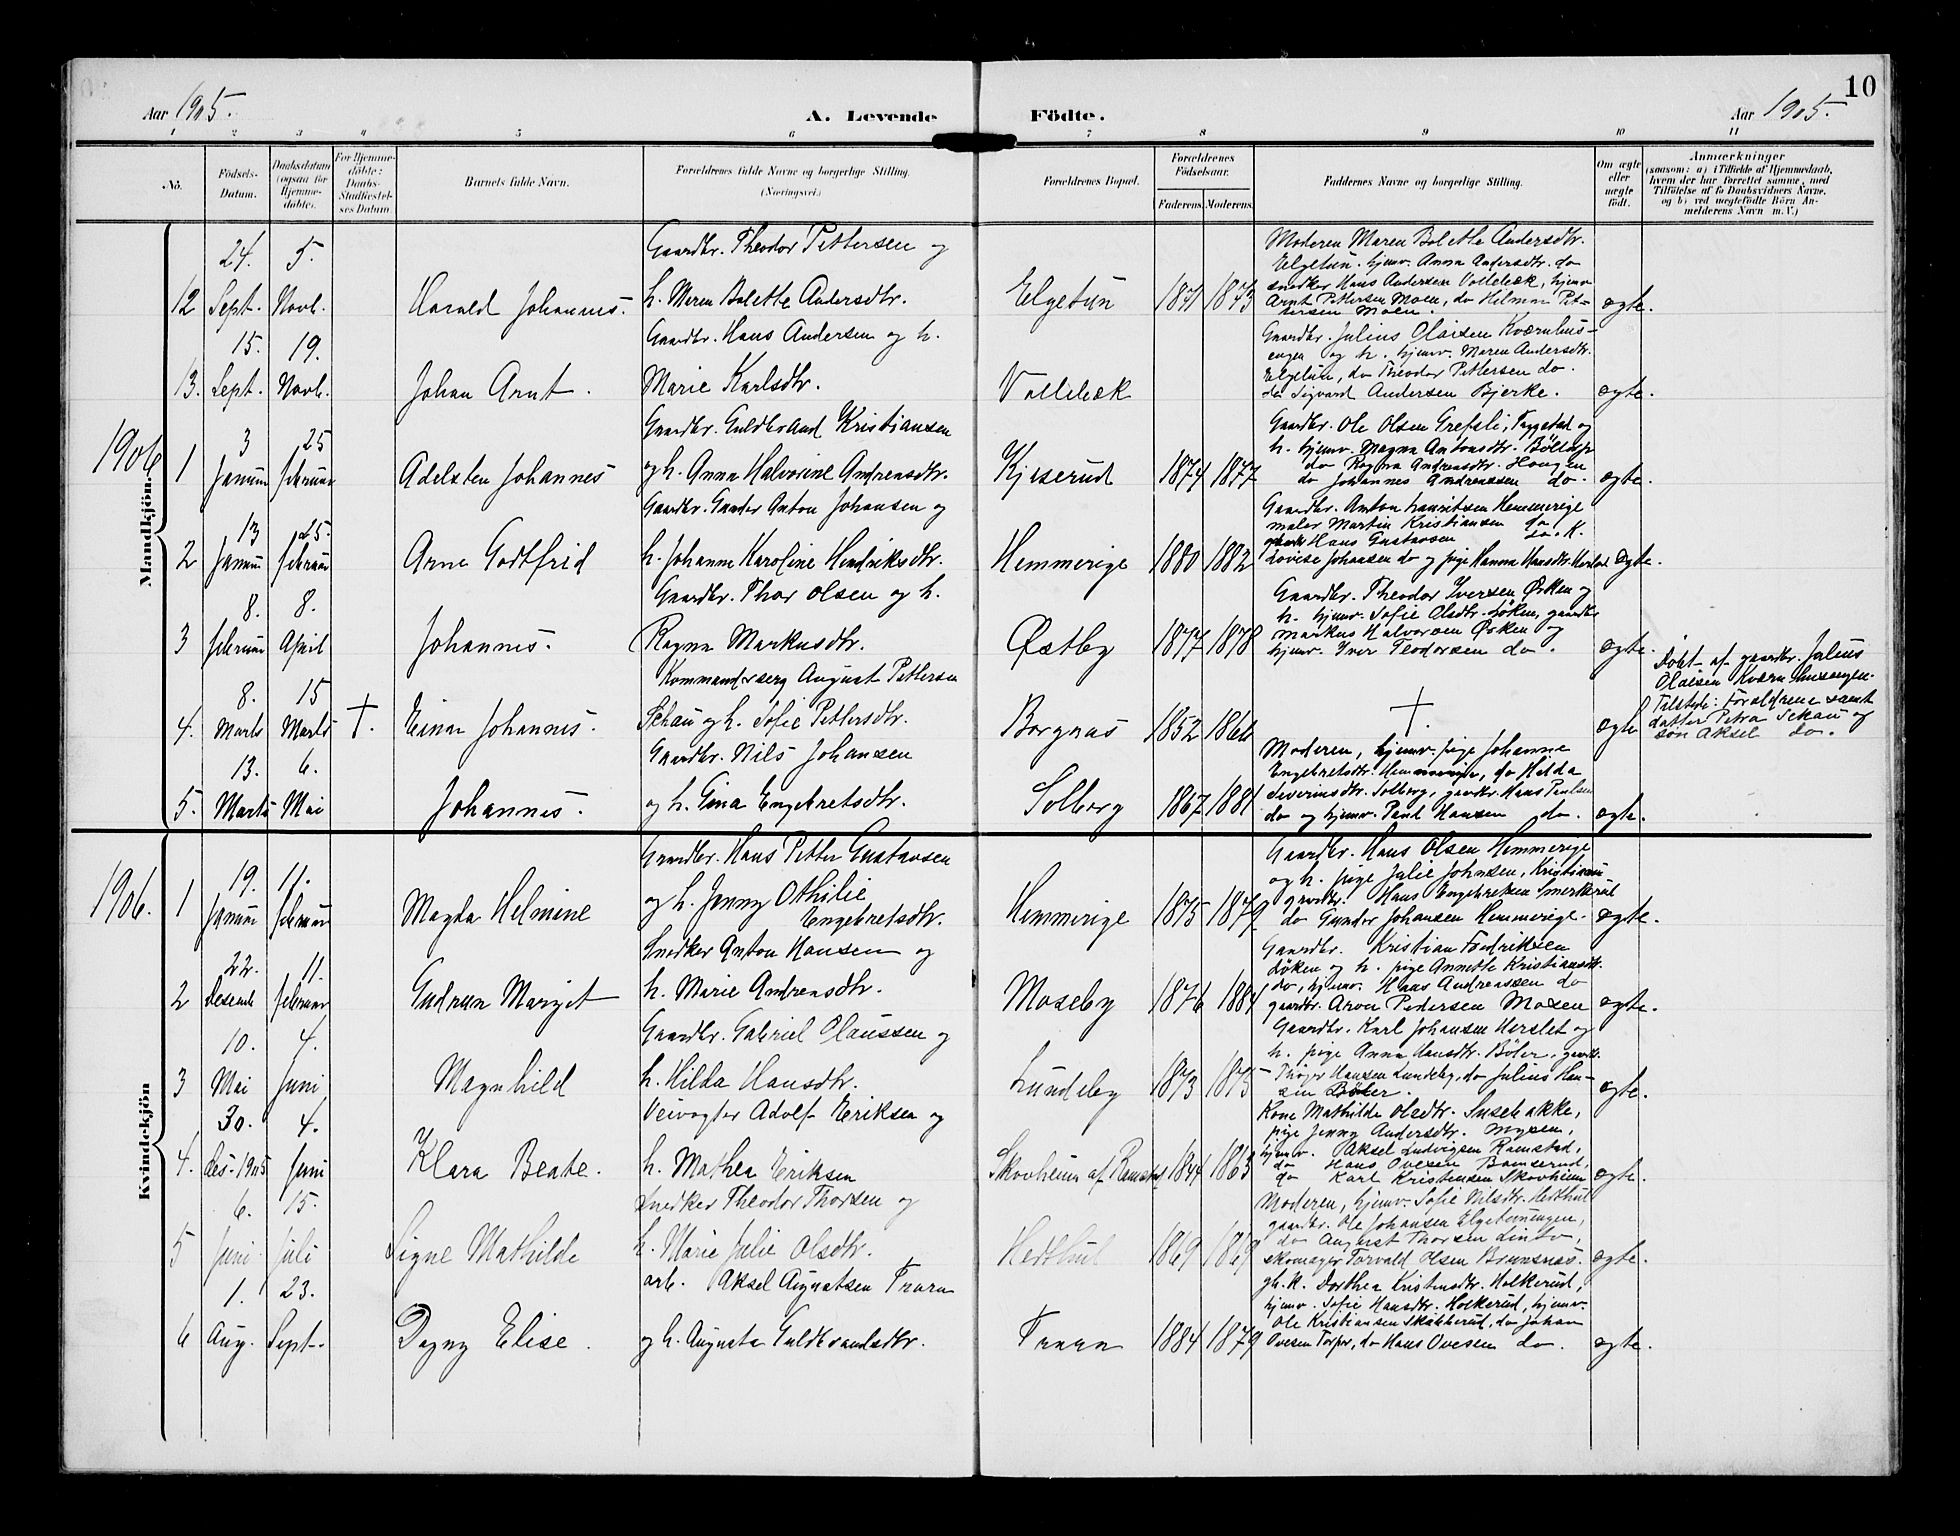 Aar 1905.
A. Levende
Födte.
Aar 1905.
10
1 2 3 4 5 6 7 8 9 10 11
No.
Födsels-Datum.
Daabsdatum (ogsaa for Hjemmedöbte).
For Hjemmedöbte: Daabs-Stadfæstelses Datum
Barnets fulde Navn.
Forældrenes fulde Navne og borgerlige Stilling. (Næringsvei.)
Forældrenes Bopæl.
Forældrenes Födselsaar.
Faderens. Moderens.
Faddernes Navne og borgerlige Stilling.
Om ægte eller uægte födt.
Anmærkninger
(saasom: a) i Tilfælde af Hjemmedaab, hvem der har forrettet samme, med Tilföielse af to Daabsvidners Navne, og b) ved uægtefödte Börn Anmelderens Navn m. V.)
Mandkjön.
12 24. Sept. 5. Novb. Harald Johannes.
Gaardbr. Theodor Pettersen og
h. Maren Bolette Andersdtr.
Elgetun 1871 1873
Moderen Maren Bolette Andersdtr.
Elgetun. hjemv. Anna Andersdtr. do
snedker Hans Andersen Vollebæk, hjemv
Arnt Pettersen Moen, do Helmer Pet-
tersen Moen.
ægte.
13. 15. Sept. 19. Novb. Johan Arnt.
Gaardbr. Hans Andersen og h.
Marie Karlsdtr.
Vollebæk
Gaardbr. Julius Olaisen Kværnhus-
engen og h. hjemv. Maren Andersdtr.
Elgetun, do Theodor Pettersen do.
do Sigvard Andersen Bjerke.
ægte.
1906
1 3 Januar 25 Februar Adelsten Johannes
Gaardbr. Guldbrand Kristiansen
og h. Anna Halvorine Andreasdtr.
Kjæserud 1874 1877
Gaardbr. Ole Olsen Grefsli, Tryggestad og
h. hjemv. Magna Antonsdtr. Böllerup
do Ragna Andreasdtr. Haugen
do Johannes Andreassen do.
ægte.
2 13 Januar 25. Februar Arne Godtfrid
Gaardbr. Gunder Anton Johansen og
h. Johanne Karoline Hendriksdtr.
Hemmerige 1880 1882
Gaardbr. Anton Lauritsen Hemmerige
maler Martin Kristiansen do
Hans Gustavsen do. K.
Lovise Johansen do og pige Hanna Hansdtr.
Ægte.
3 8. Februar 8. April Johannes.
Gaardbr. Thor Olsen og h.
Ragna Markusdtr.
Østby 1877 1878
Gaardbr. Theodor Iversen Ørken og
h. hjemv. Sofie Olsdtr. Löken, gaardbr
Markus Halvorsen Ørken og
hjemv. Iver Teodorsen do.
ægte.
4. 8. Marts 15 Marts †. Einar Johannes.
Kommandersørg August Pettersen
Schau og h. Sofie Pettersdtr.
Borgnæs 1852 1860
†.
ægte
Döbt af gaardbr. Julius
Olaisen Kværnhusengen.
Tilstede: Forældrene samt
datter Petra Schau og
sön Aksel do.
5. 13. Marts 6. Mai Johannes.
Gaardbr. Nils Johansen
og h. Gina Engebretsdtr.
Solberg 1867 1881
Moderen, hjemv. pige Johanne
Engebretsdtr. Hemmerige, do Hilda
Severinsdtr. Solberg, gaardbr. Hans Paulsen
do og hjemv. Paul Hansen do.
ægte.
Kvindekjön
1906.
1 19. Januar 11. Februar Magda Helmine
Gaardbr. Hans Petter Gustavsen
og h. Jenny Othilie
Engebretsdtr.
Hemmerige 1875 1879
Gaardbr. Hans Olsen Hemmerige
og h. pige Julie Johnsen, Kristiania
gaardbr. Hans Engebretsen Smerkerud
do Gunder Johansen Hemmerige.
ægte.
2 22. Desemb 11. Februar Gudrun Margit
Snedker Anton Hansen og
h. Marie Andreasdtr.
Moseby 1876 1884
Gaardbr. Kristian Fredriksen
Löken og h. pige Annette Kristiansdtr.
do, hjemv. Hans Andreassen do
gaardbr. Aron Pedersen Mosen
ægte.
3 10. Mai 4. Juni Magnhild
Gaardbr. Gabriel Olaussen og
h. Hilda Hansdtr.
Lundeby 1873 1875
Gaardbr. Karl Johansen Herslet og
h. pige Anna Hansdtr. Böler, gaardbr.
Thöger Hansen Lundeby, do Julius Han-
sen Böler.
ægte.
4. 30. Des. 1905 4. Juni Klara Beate.
Veivogter Adolf Eriksen og
h. Mathea Eriksen
Skovheim af Ramstad 1844 1863
Kone Mathilde Olsdtr. Susebakke,
pige Jenny Andersdtr. Mysen,
hjemv. Aksel Ludvigsen Ramstad,
do Hans Ovesen Bamserud,
do Karl Kristensen Skovheim
ægte.
5 6. Juni 15. Juli Signe Mathilde
Snedker Theodor Thorsen og
h. Marie Julie Olsdtr.
Hedthul 1869 1869
Moderen, hjemv. Sofie Nilsdtr. Hedthul
gaardbr. Ole Johansen Elgetunengen,
do August Thorsen Linbo,
skomager Torvald Olsen Brunsnæs.
ægte.
6 1. Aug. 23. Sept. Dagny Elise.
arb. Aksel Augustsen Traran
og h. Augusta Guldbrandsdtr.
Traran 1884 1879
gb. k. Dorthea Kristensdtr. Holkerud,
hjemv. Sofie Hansdtr. Holkerud, hjemv.
Ole Kristiansen Skakkerud, do Johan
Ovesen Torper, do Hans Ovesen do.
ægte.